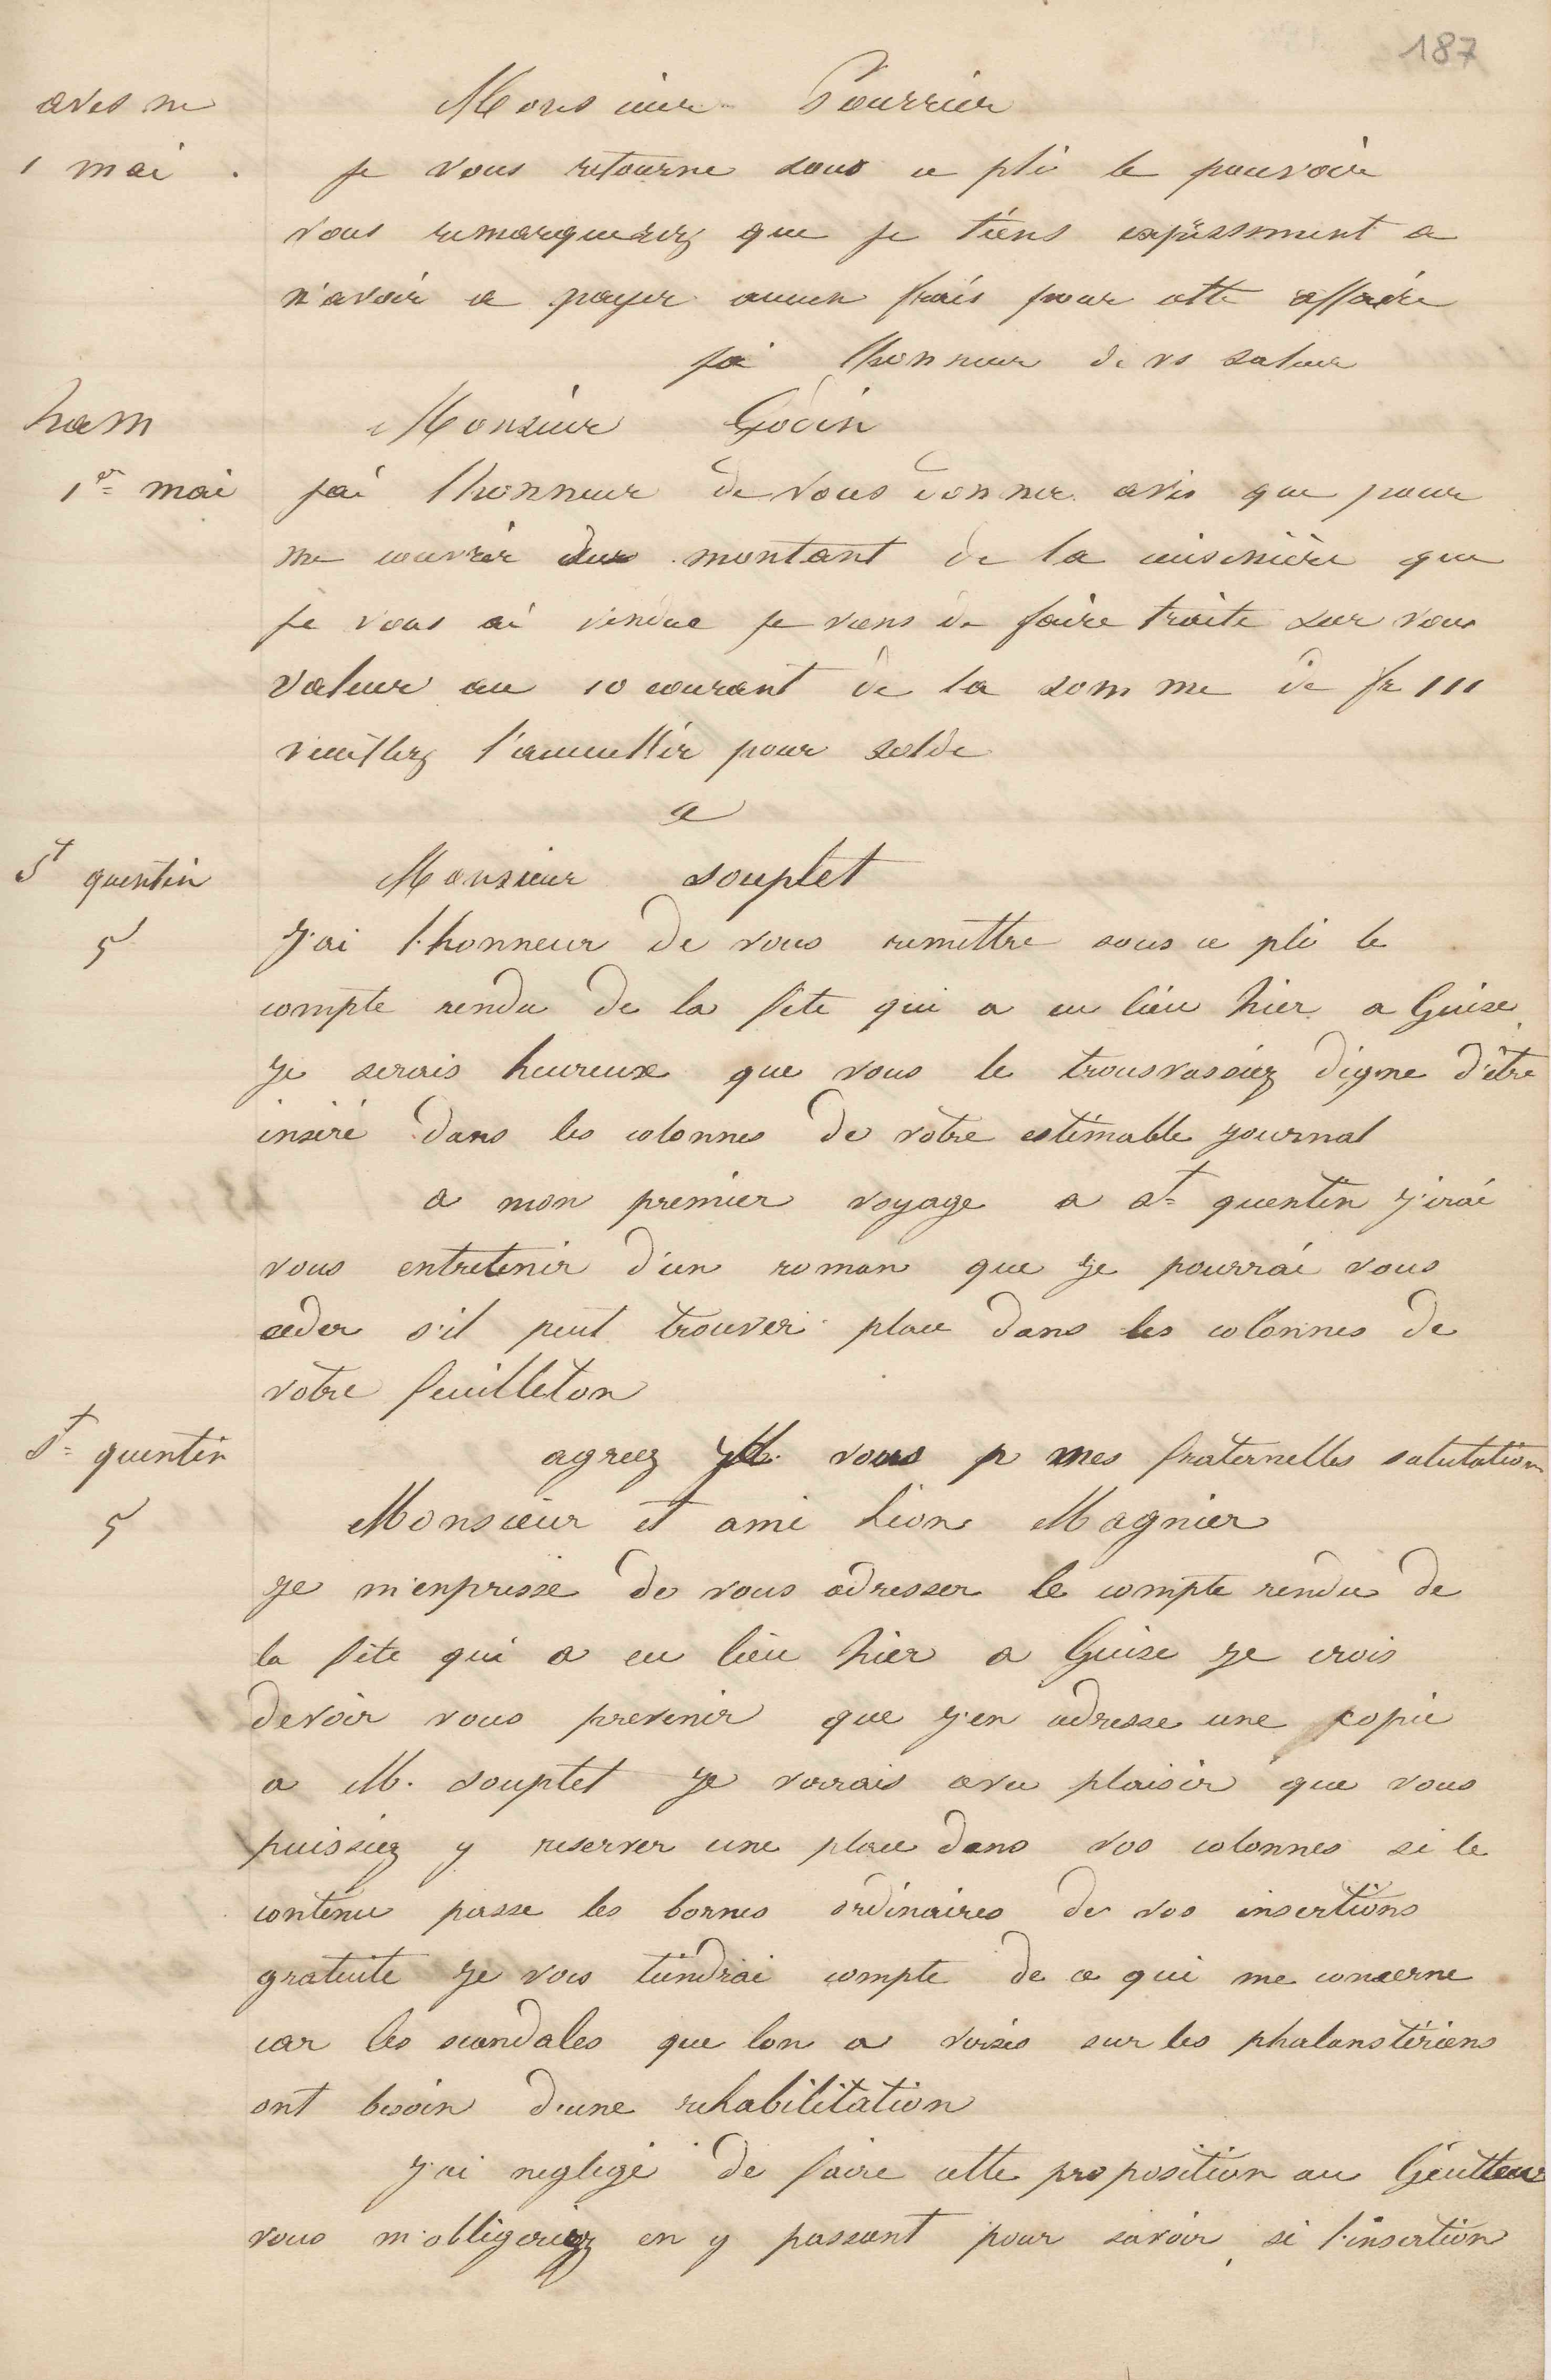 187
avesne Monsieur Pourrier
1 mai . je vous retourne sous ce pli le pouvoir
vous remarquerez que je tiens expressment a
n'avoir a payer aucun frais pour cette affaire
jai lhonneur de vs saluer
ham Monsieur Godin
1er mai jai lhonneur de vous donner avis que pour
me couvrir du montant de la cuisinière que
je vous ai vendue je viens de faire traite sur vous
valeur au 10 courant de la somme de fr 111
veuillez l'accueillir pour solde
a
St quentin Monsieur souplet
5 J'ai l'honneur de vous remettre sous ce pli le
compte rendu de la fete qui a eu lieu hier a Guise
je serais heureux que vous le trousvassiez digne d'être
inséré dans les colonnes de votre estimable journal
a mon premier voyage a st quentin j'irai
vous entretenir d'un roman que je pourrai vous
ceder s'il peut trouver place dans les colonnes de
votre feuilleton
St quentin agreez M. vous p mes fraternelles salutation
5 Monsieur et ami Léon Magnier
je m'enpresse de vous adresser le compte rendu de
la fête qui a eu lieu hier a Guise je crois
devoir vous prevenir que j'en adresse une copie
a M. souplet je verrais avec plaisir que vous
puissiez y reserver une place dans vos colonnes si le
contenu passe les bornes ordinaires de vos insertions
gratuite je vous tiendrai compte de ce qui me concerne
car les scandales que lon a versés sur les phalanstériens
ont besoin d'une rehabilitation
j'ai negligé de faire cette proposition au
vous m'obligeriez en y passant pour savoir si l'insertion